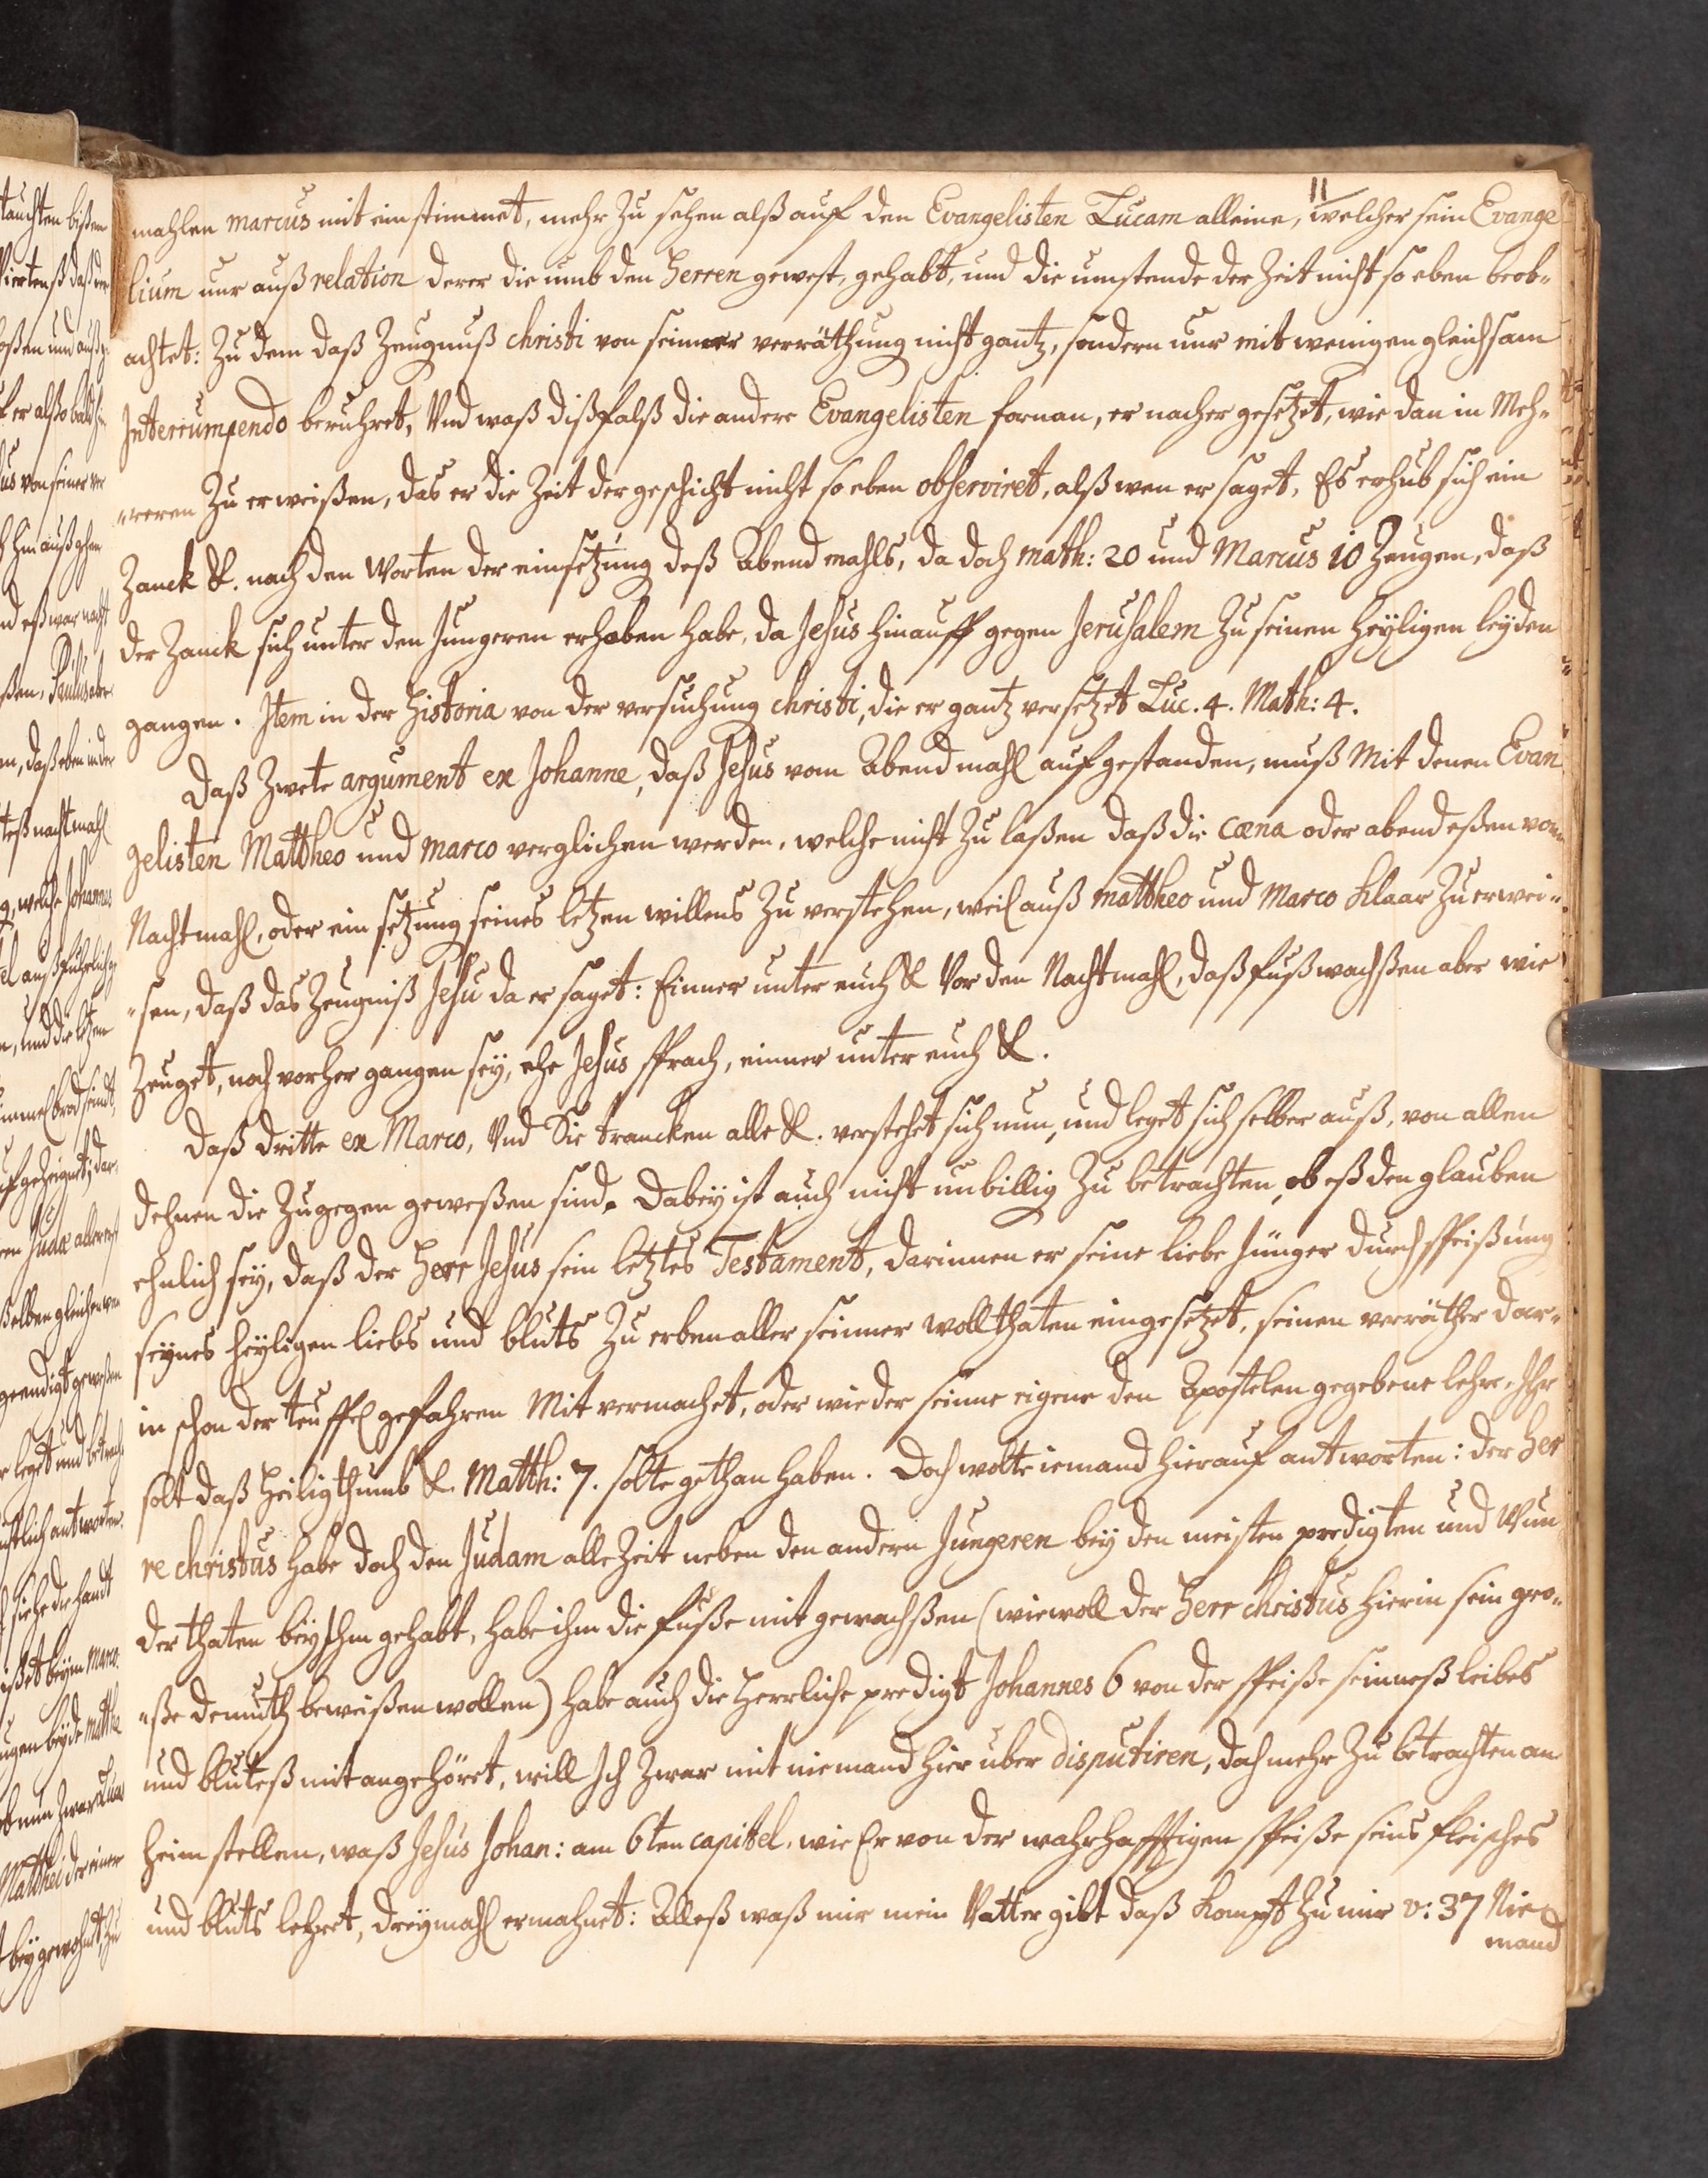 11
mahlen marcus mit ein stimmet, mehr Zu sehen alß auf den Evangelisten Lucam alleine, welcher sein Evange
lium nur auß relation derer die umb den Herren gewest, gehabt, und die umstende der Zeit nicht so eben beob-
achtet: Zu dem daß Zeugnuß christi von seinner verräthung nicht gantz, sondern nur mit wenigen gleichsam
Interrumpendo beruhret, Und waß dißfalß die andere Evangelisten fornan, er nacher gesetzet, wie dan in Meh-
-reren Zu erweißen, das er die Zeit der geschicht nicht so eben observiret, alß wen er saget, Es erhub sich ein
Zanck &. nach den Worten der einsetzung deß Abend mahls, da doch math: 20 und Marcus 10 Zeugen, daß
der Zanck sich unter den Jungeren erhaben habe, da Jesus hinauff gegen Jerusalem Zu seinen heyligen leyden
gangen. Item in der Historia von der versuchung christi, die er gantz versetzet Luc. 4. Math: 4.
Daß Zwete argument ex Johanne, daß Jesus vom Abendmahl aufgestanden, muß Mit denen Evan
gelisten Mattheo und marco verglichen werden, welche nicht Zu laßen daß die cæna oder abend eßen vom
Nachtmahl, oder ein setzung seines letzen willens Zu verstehen, weil auß mattheo und Marco klaar Zu erwei-
-sen, daß das Zeugniß Jesu da er saget: Einner unter euch & Vor den Nachtmahl, daß fußwachßen aber wie
Zeuget, noch vorher gangen sey, ehe Jesus sprach, einner unter euch &.
Daß dritte ex Marco, Und Sie trancken alle &. verstehet sich nun, und leget sich selber auß, von allen
dehnen die Zugegen geweßen sind. Dabey ist auch nicht unbillig Zu betrachten, ob eß den glauben
ehnlich sey, daß der Herr Jesus sein letztes Testament, darinnen er seine liebe Jünger durch speißung
seynes heyligen liebs und bluts Zu erben aller seinner wollthaten eingesetzet, seinen verräther dar-
in schon der teuffel gefahren Mit vermachet, oder wieder seinne eigene den Apostelen gegebene lehre, Ihr
solt daß Heiligthumb &. Matth: 7. solte gethan haben. Doch wolte iemand hierauf antworten: der Her
re christus habe doch den Judam alle Zeit neben den andern Jungeren bey den meisten predigten und Wun
der thaten bey Ihm gehabt, habe ihm die fuße mit gewachßen (wiewoll der Herr christus hierin sein gro-
-ße demuth beweißen wollen) habe auch die Herrliche predigt Johannes 6 von der speiße seinneß leibes
und bluteß mit angehöret, will Ich Zwar mit niemand hier uber disputiren, doch mehr Zu betrachten an
heim stellen, waß Jesus Johan: am 6ten capitel, wie Er von der wahrhafftigen speiße seins fleisches
und bluts lehret, dreymahl ermahnet: Alleß waß mir mein Vatter gibt daß kompt Zu mir v: 37 Nie
mand